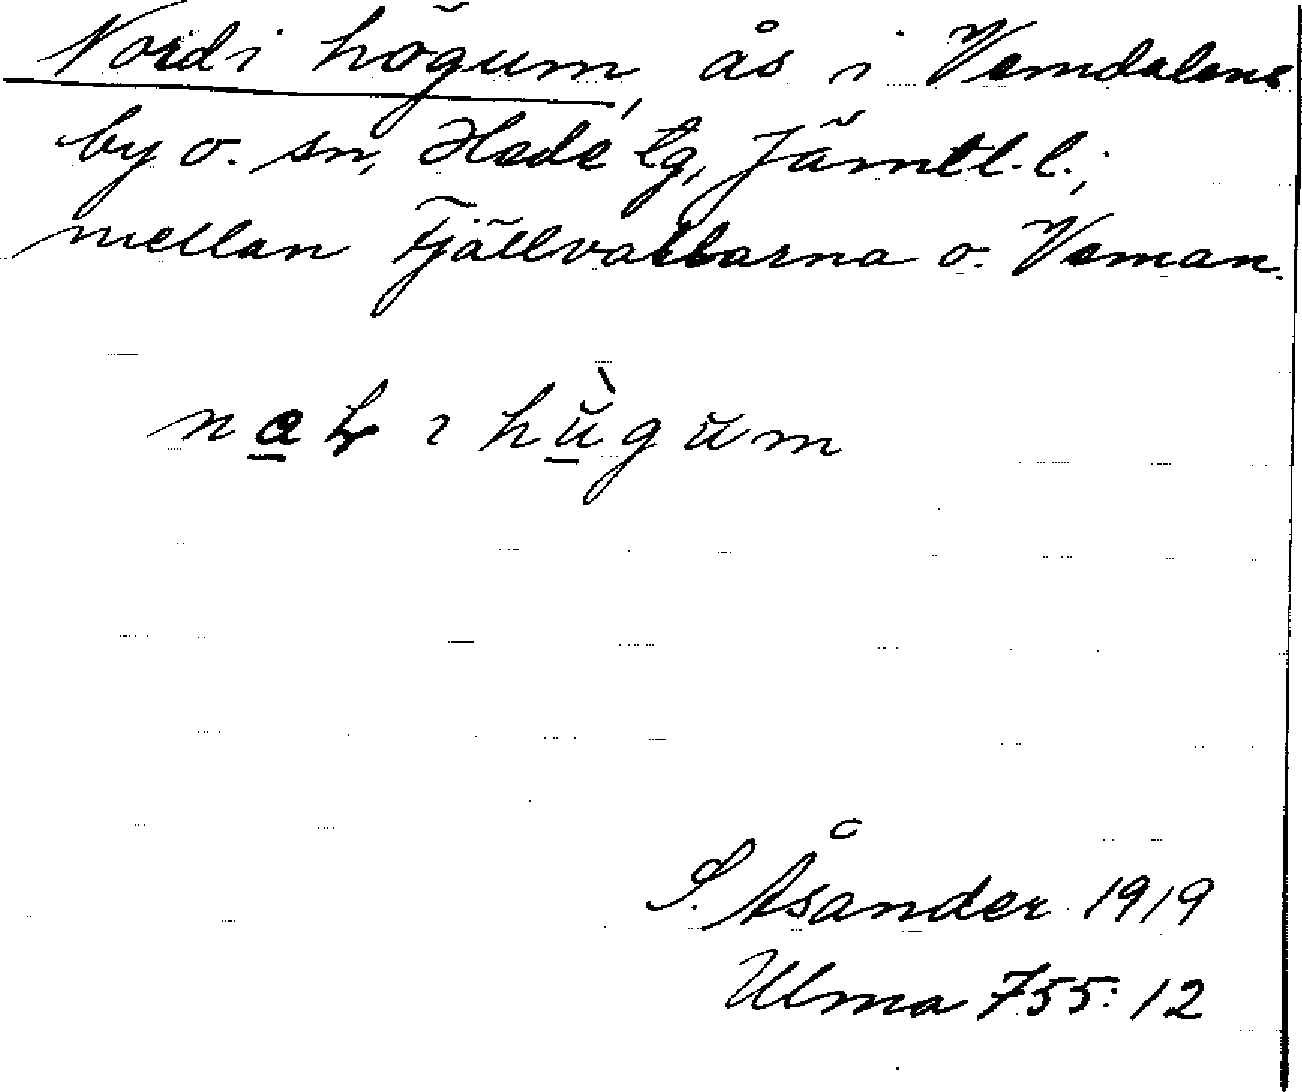 Nord i högum, ås i Vemdalens
by o. sn, Hede tg, Jämtl. l.;
mellan Fjällvallarna o. Veman.
i hŭ̀gŭm
S. Åsander 1919
Ulma 755:12